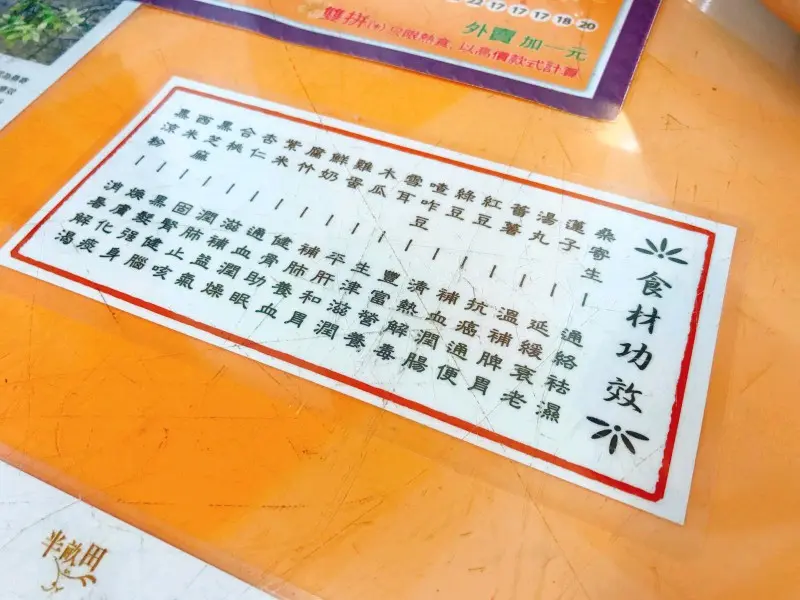 22 17 17 17 18 20
外賣 加一元
雙拼(+)只限熱食,以高價款式計算
食材功效
桑寄生—通絡祛濕
蓮子—延緩衰老
湯丸—溫補脾胃
蕃薯—抗癌通便
紅豆—補血潤腸
綠豆—清熱解毒
喳咋豆—豐富營養
雪耳—生津滋潤
木瓜—平肝和胃
雞蛋—補肺養血
鮮奶—健骨助眠
腐竹—通血潤燥
紫米—滋補益氣
杏仁—潤肺止咳
合桃—固腎健腦
黑芝麻—黑髮强身
西米—燥濕化痰
黑涼粉—消暑解渴
半畝田